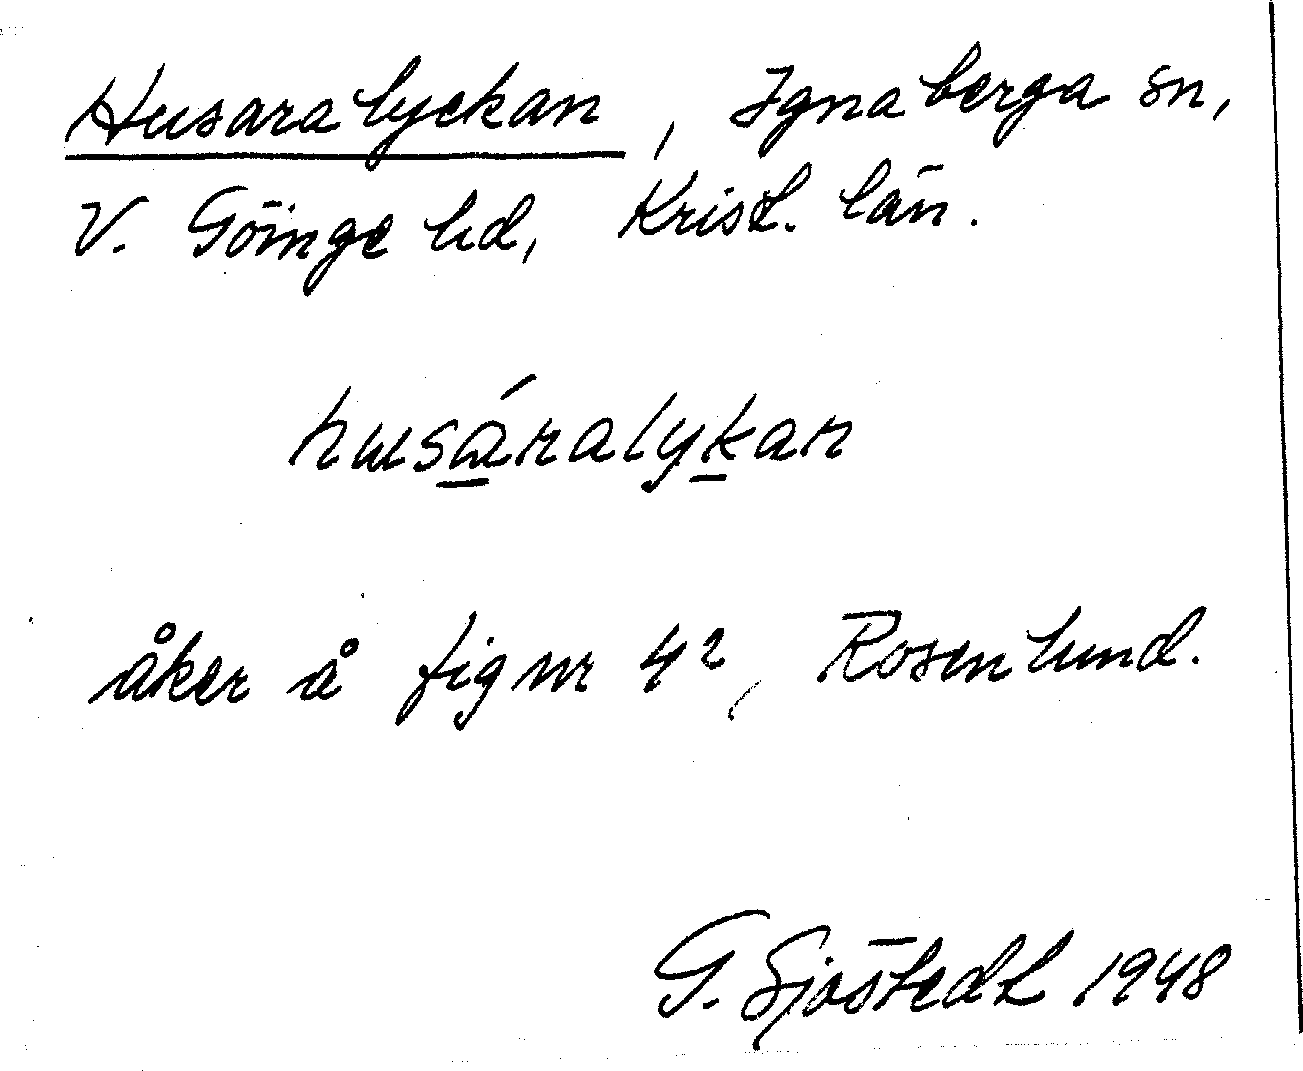 Husaralyckan, Ignaberga sn,
V. Göinge hd, Krist. län.
husáralykan
åker å fig nr 42, Rosenlund.
G. Sjöstedt 1948